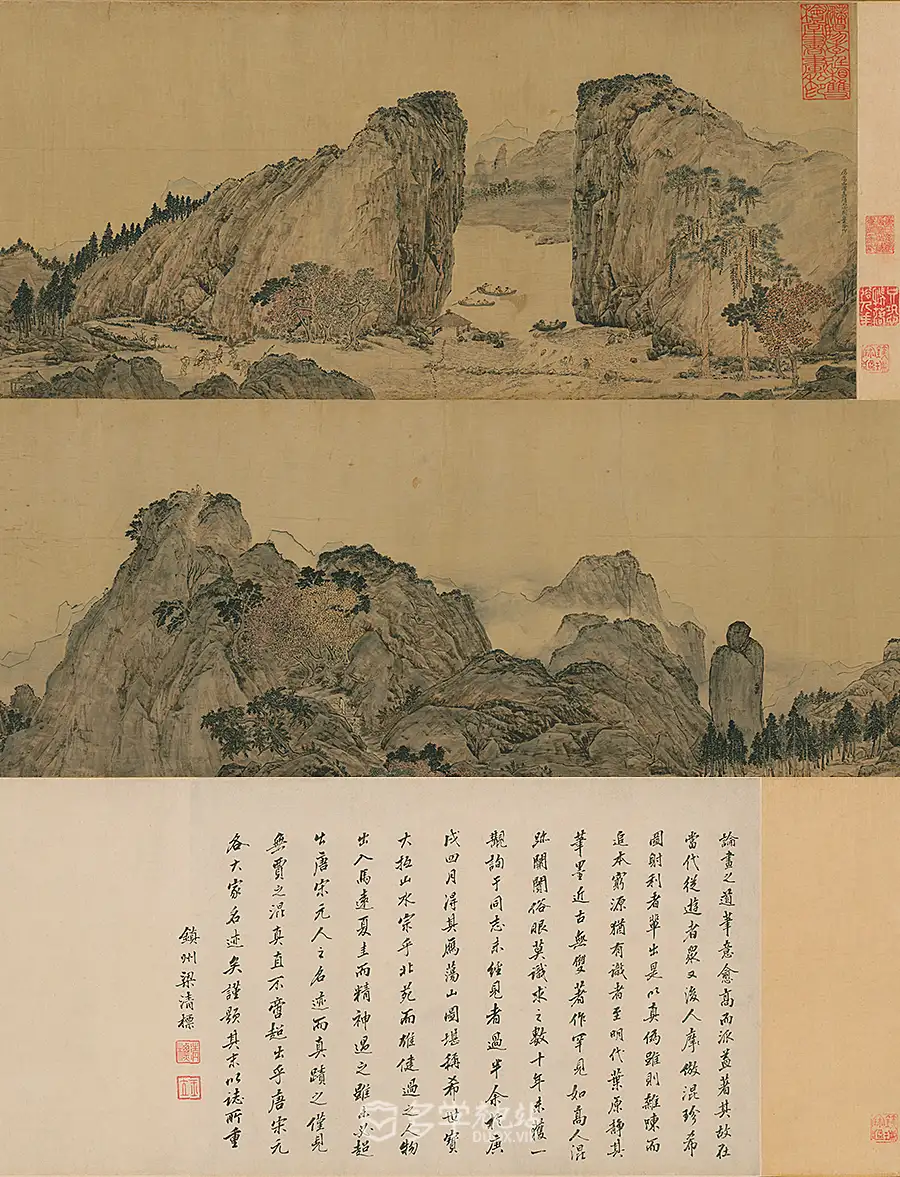 論畫之道筆意愈高而派益著其故在
當代從遊者眾又後人摩倣混珍希
圖射利者輩出是以真偽雖則雜陳而
追本窮源猶有識者至明代葉原靜其
筆墨近古無雙著作罕見如高人混
跡闤闠俗眼莫識求之數十年未獲一
觀詢于同志未經見者過半余於庚
戌四月得其雁蕩山圖堪稱希世寶
大抵山水宗乎北苑而雄健過之人物
出入馬遠夏圭而精神過之雖
出唐宋元人之名迹而真蹟之僅見
無賈之混真直不啻超出乎唐宋元
各大家名迹矣謹題其末以誌所重
鎮州梁清標
名学视站